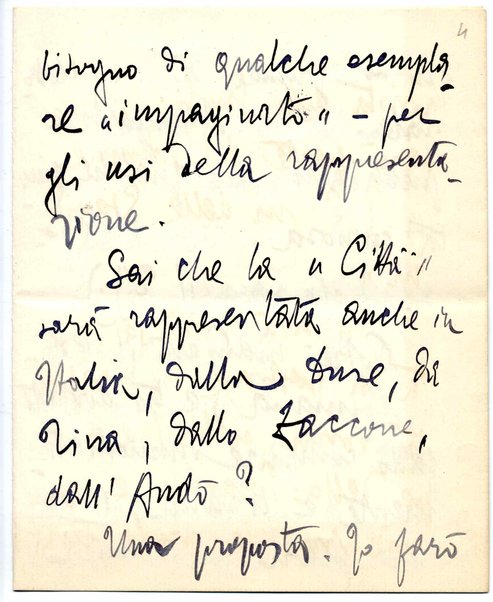 4
bisogno di qualche esempla-
re "impaginato" - per
gli usi della rappresenta-
zione.
Sai che la "Città"
sarà rappresentata anche in
Italia, dalla Duse, da
Rina, dallo Zaccone,
dall' Andò?
Una proposta. Io farò